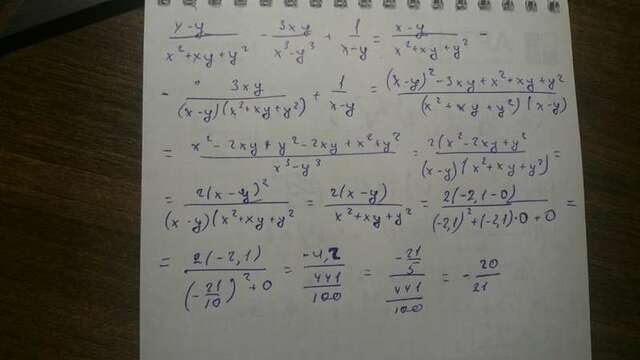 (x-y)/(x²+xy+y²) - 3xy/(x³-y³) + 1/(x-y) = (x-y)/(x²+xy+y²) -
- 3xy/((x-y)(x²+xy+y²)) + 1/(x-y) = ((x-y)²-3xy+x²+xy+y²)/((x²+xy+y²)(x-y))
= (x²-2xy+y²-2xy+x²+y²)/(x³-y³) = 2(x²-2xy+y²/((x-y)(x²+xy+y²)) =
= 2(x-y)²/((x-y)(x²+xy+y²) = 2(x-y)/(x²+xy+y²) = 2(-2,1-0)/((-2,1)²+(-2,1)·0+0) =
= 2(-2,1)/((-21/10)²+0) = -4,2/(441/100) = (-21/5)/(441/100) = -20/21